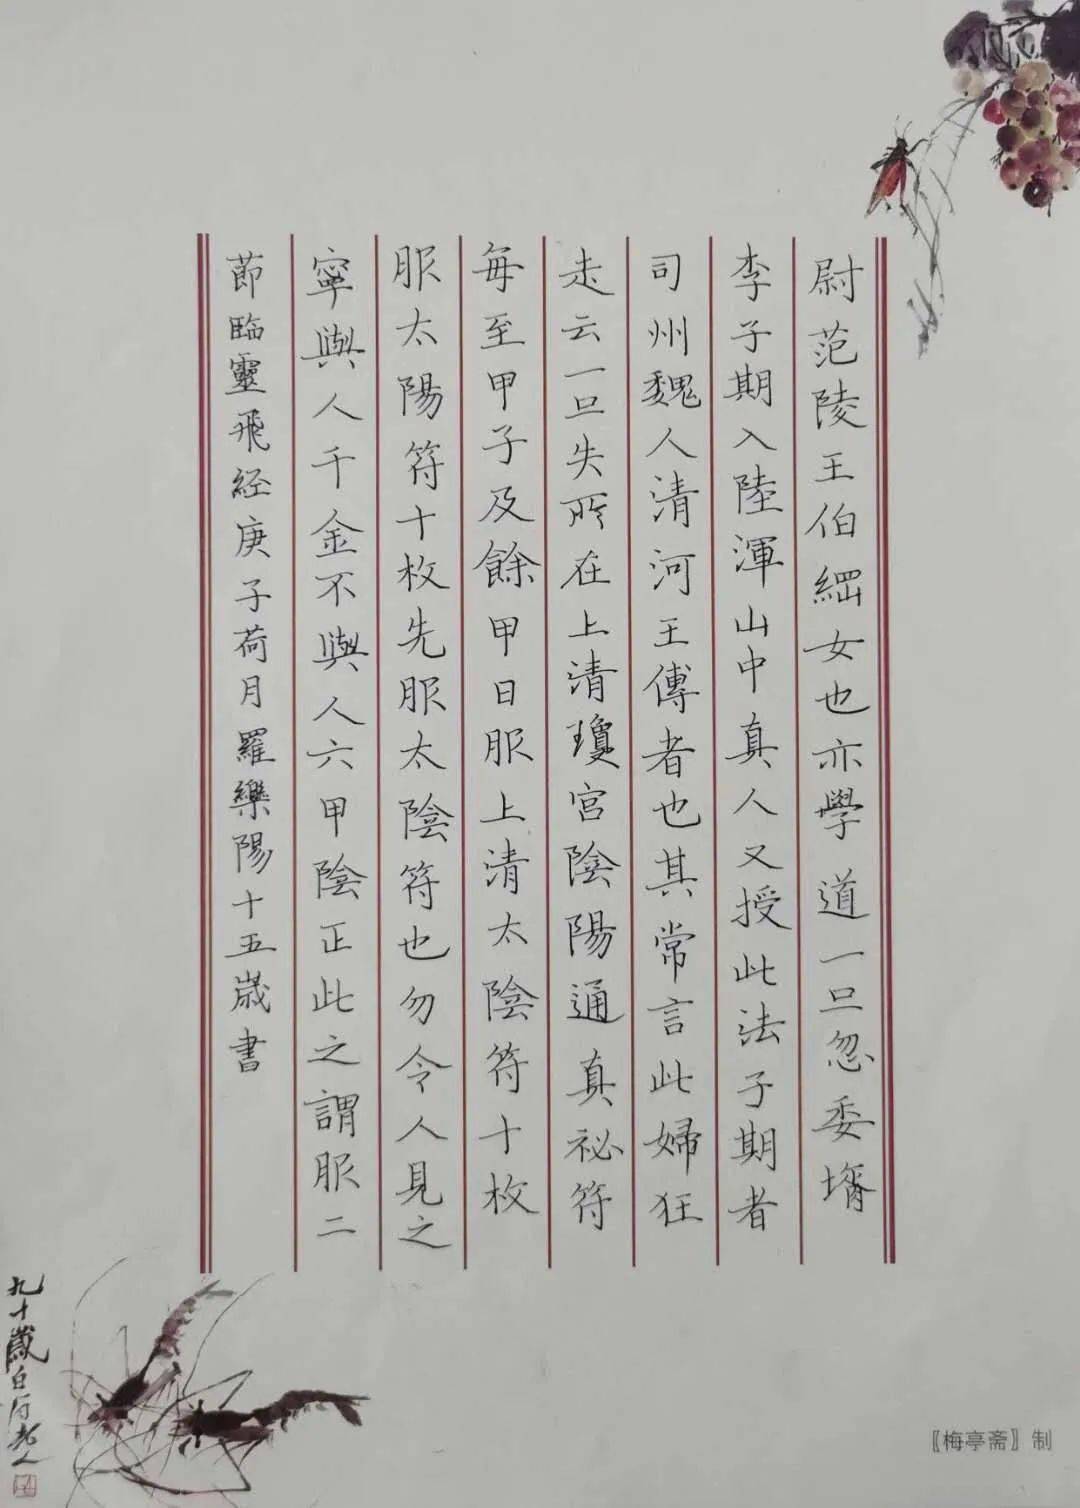 尉范陵王伯綱女也亦學道一旦忽委壻
李子期入陸渾山中真人又授此法子期者
司州魏人清河王傅者也其常言此婦狂
走云一旦失所在上清瓊宮陰陽通真祕符
每至甲子及餘甲日服上清太陰符十枚
服太陽符十枚先服太陰符也勿令人見之
寧與人千金不與人六甲陰正此之謂服二
節臨靈飛経庚子荷月羅樂陽十五歲書
九十歲白石老人
〖梅亭斋〗制